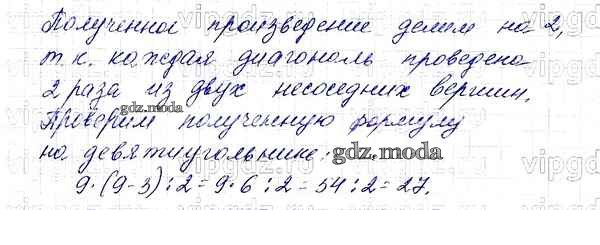 Полученное произведение делим на 2,
т.к. каждая диагональ проведена
2 раза из двух несоседних вершин.
gdz.moda
Проверим полученную формулу
на девятиугольнике:
gdz.moda
9·(9-3):2=9·6:2=54:2=27.